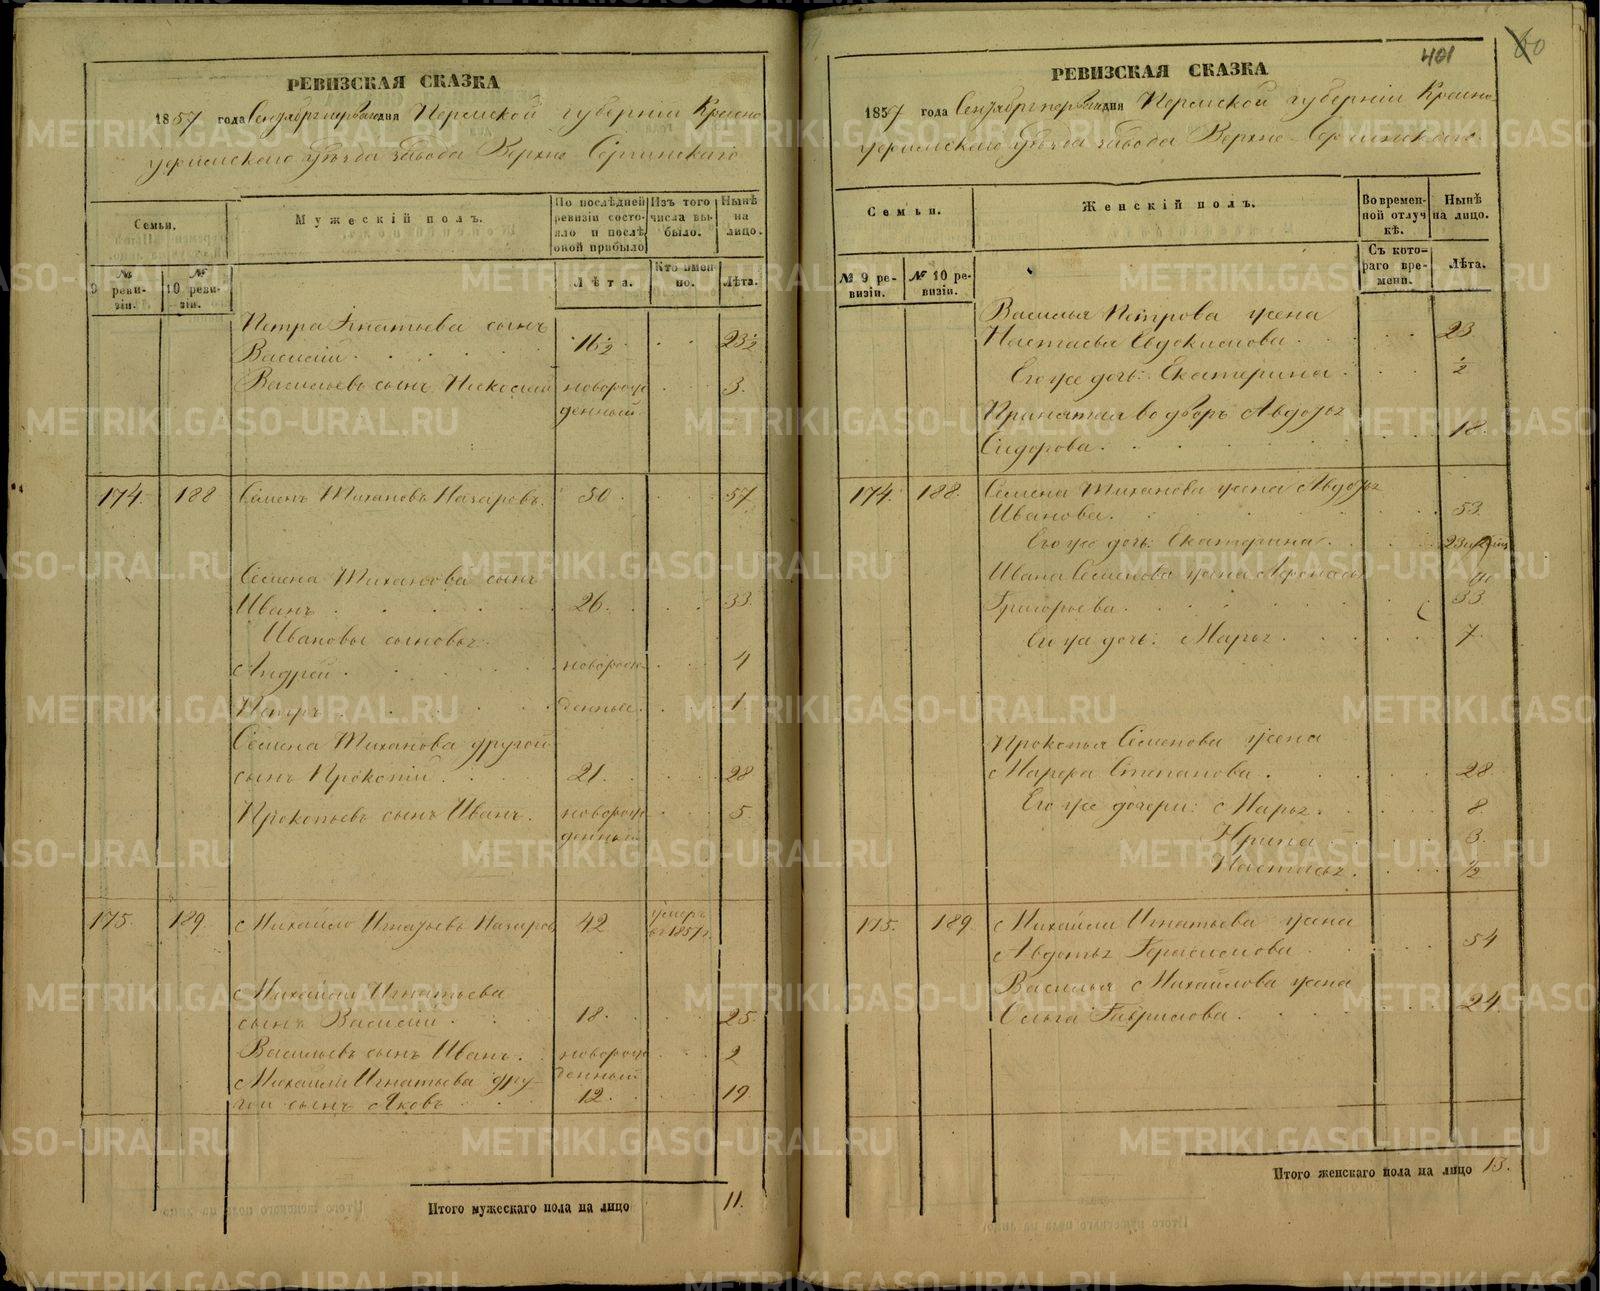 РЕВИЗСКАЯ СКАЗКА
1857 года Сентября перваго дня Пермской губерніи Красно-
уфимскаго уѣзда завода Верхне-Сергинскаго
Семьи.
Мужескій полъ.
По послѣдней ревизіи состояло и послѣ оной прибыло
Изъ того числа выбыло.
Нынѣ на лицо.
№ 9 ревизіи.
№ 10 ревизіи.
Лѣта.
Кто именно.
Лѣта.
Петра Игнатьева сынъ
Василій 16½ 23½
Васильевъ сынъ новорож- 3.
денный
174. 188 Семенъ Тихановъ Назаровъ. 50 57
Семена Тиханова сынъ
Иванъ 26. 33.
Ивановы сыновья:
Андрей новорож- 4
Петръ денные. 1
Семена Тиханова другой
сынъ Прокопій 21. 28
Прокопьевъ сынъ Иванъ. новорож- 5.
денный
175. 189. Михайло Игнатьевъ Назаровъ 42 умеръ
въ 1857 г.
Михайлы Игнатьева
сынъ Василій 18. 25.
Васильевъ сынъ Иванъ. новорож- 2
денный
Михайлы Игнатьева дру-
гой сынъ Яковъ 12. 19.
Итого мужескаго пола на лицо 11.
401
60
РЕВИЗСКАЯ СКАЗКА
1857 года Сентября перваго дня Пермской губерніи Красно-
уфимскаго уѣзда завода Верхне-Сергинскаго
Семьи.
Женскій полъ.
Во временной отлучкѣ.
Нынѣ на лицо.
№ 9 ревизіи.
№ 10 ревизіи.
Съ котораго времени.
Лѣта.
Василья Петрова жена
Настасья Евдокимова 23.
Его же дочь: Екатерина ½
Принятая во дворъ Авдотья
Сидорова. 18.
174. 188. Семена Тиханова жена Авдотья
Иванова. 53.
Его же дочь: Екатерина. 23
Ивана Семенова жена
Григорьева. 33
Его же дочь: Марья 7.
Прокопья Семенова жена
Степанова. 28
Его же дочери: Марья. 8.
Ирина 3.
Настасья. ½
175. 189. Михайлы Игнатьева жена
Авдотья Герасимова 54
Василья Михайлова жена
Ольга Гаврилова. 24.
Итого женскаго пола на лицо 13.
METRIKI.GASO-URAL.RU